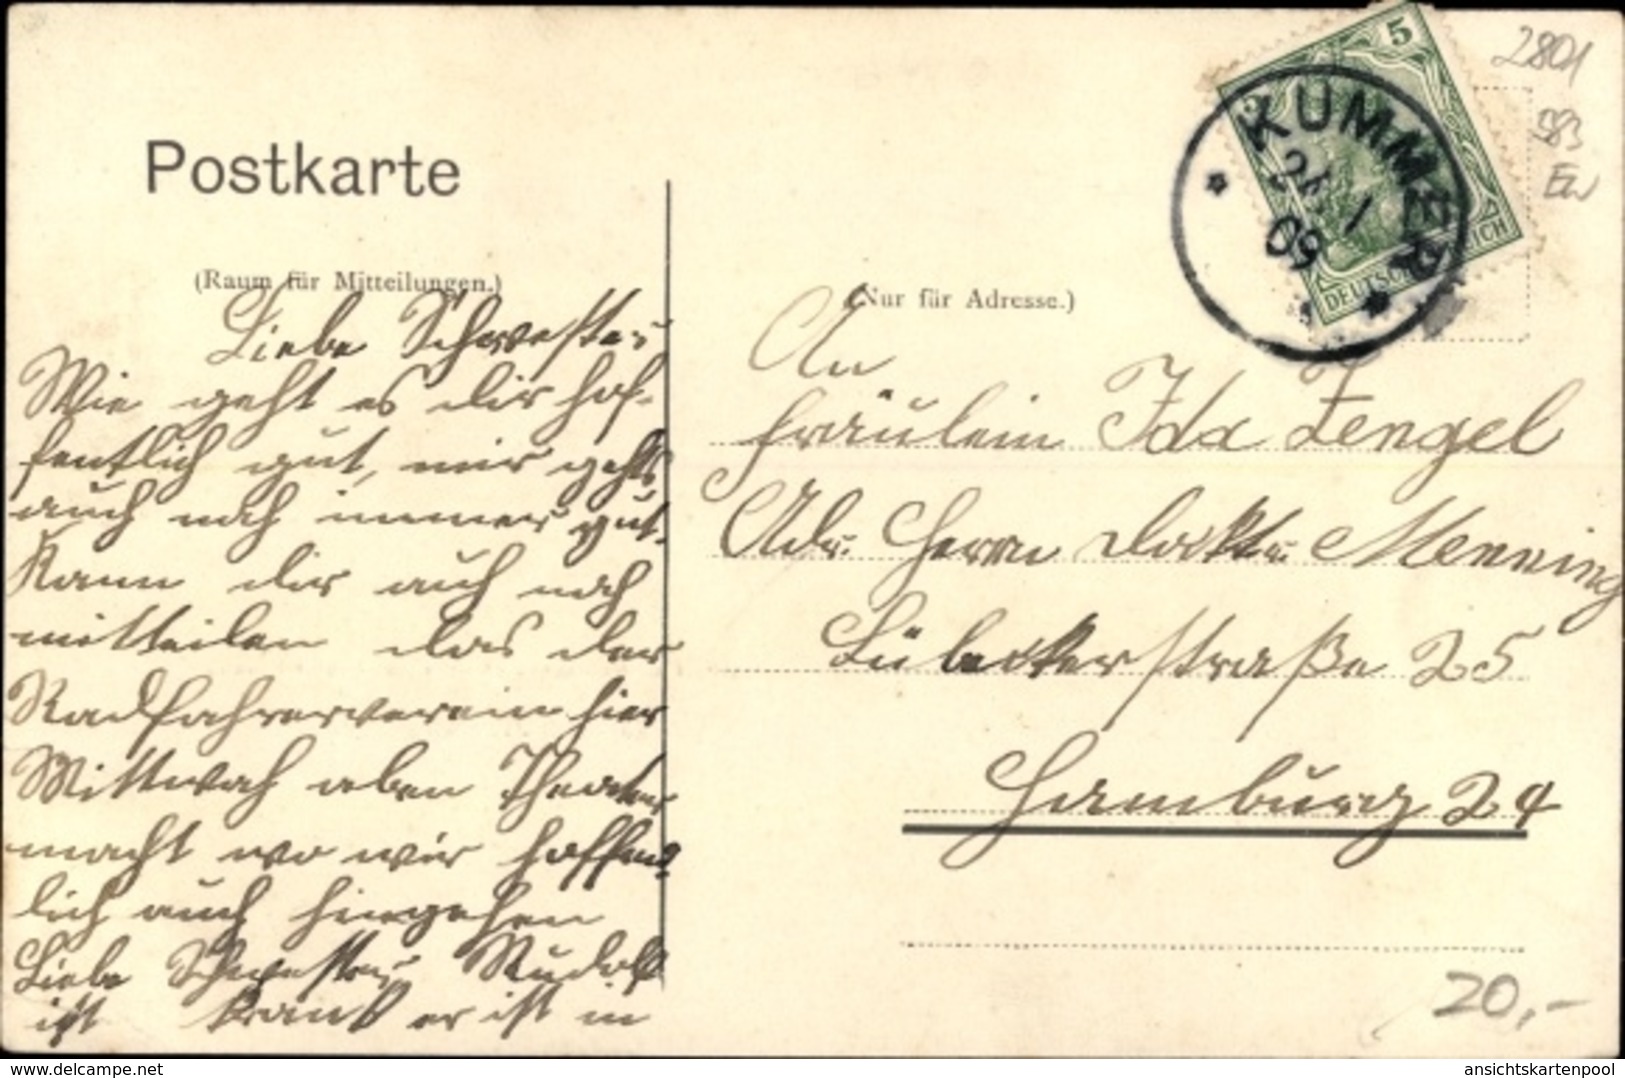 Postkarte
(Raum für Mitteilungen.)
Liebe Schwester
Wie geht es dir hof-
fentlich gut, mir gehts
auch noch immer gut.
Kann dir auch noch
mitteilen das der
Radfahrerverein hier
Mittwoch aben Theater
macht wo wir hoffend
lich auch hingehen
Liebe Schwester Rudolf
ist krank er ist in
(Nur für Adresse.)
An
Fräulein Ida Zengel
Adr. Herrn Doktr. Menning
Lübeckerstraße 25
Hamburg 24
5
DEUTSCHES REICH
KUMMER
24 1
09
2801
983
EW
20,-
www.delcampe.net
ansichtskartenpool